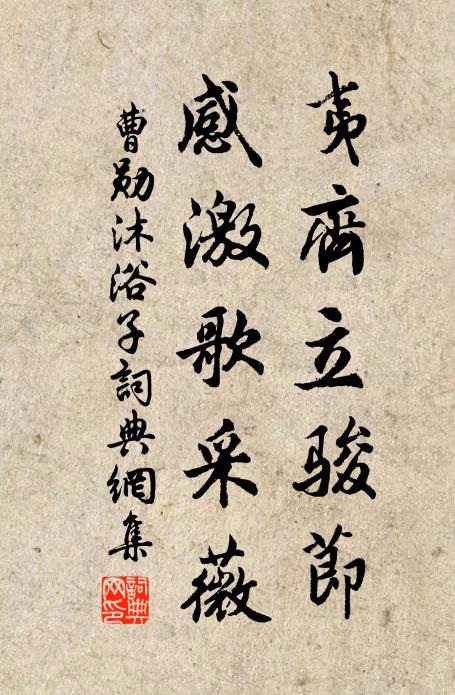 夷齊立骏節
感激歌采薇
曹勛沐浴子詞典網集
詞典网印